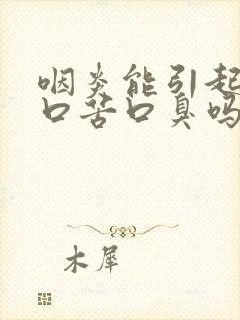 咽炎能引起
口苦口臭吗
木犀